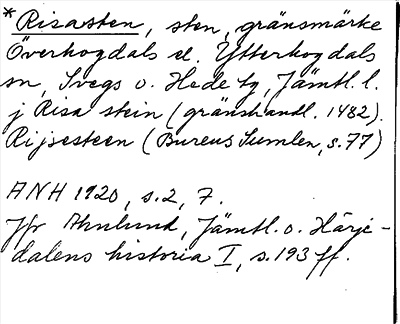 *Risasten, sten, gränsmärke
Överhogdals el. Ytterhogdals
sn, Svegs o. Hede tg, Jämtl. l.
j Risa stein (gränshandl. 1482).
Rijsesteen (Bureus Sumlen, s. 77)
ANH 1920, s. 2, 7.
Jfr Ahnlund, Jämtl. o. Härje-
dalens historia I, s. 193 ff.